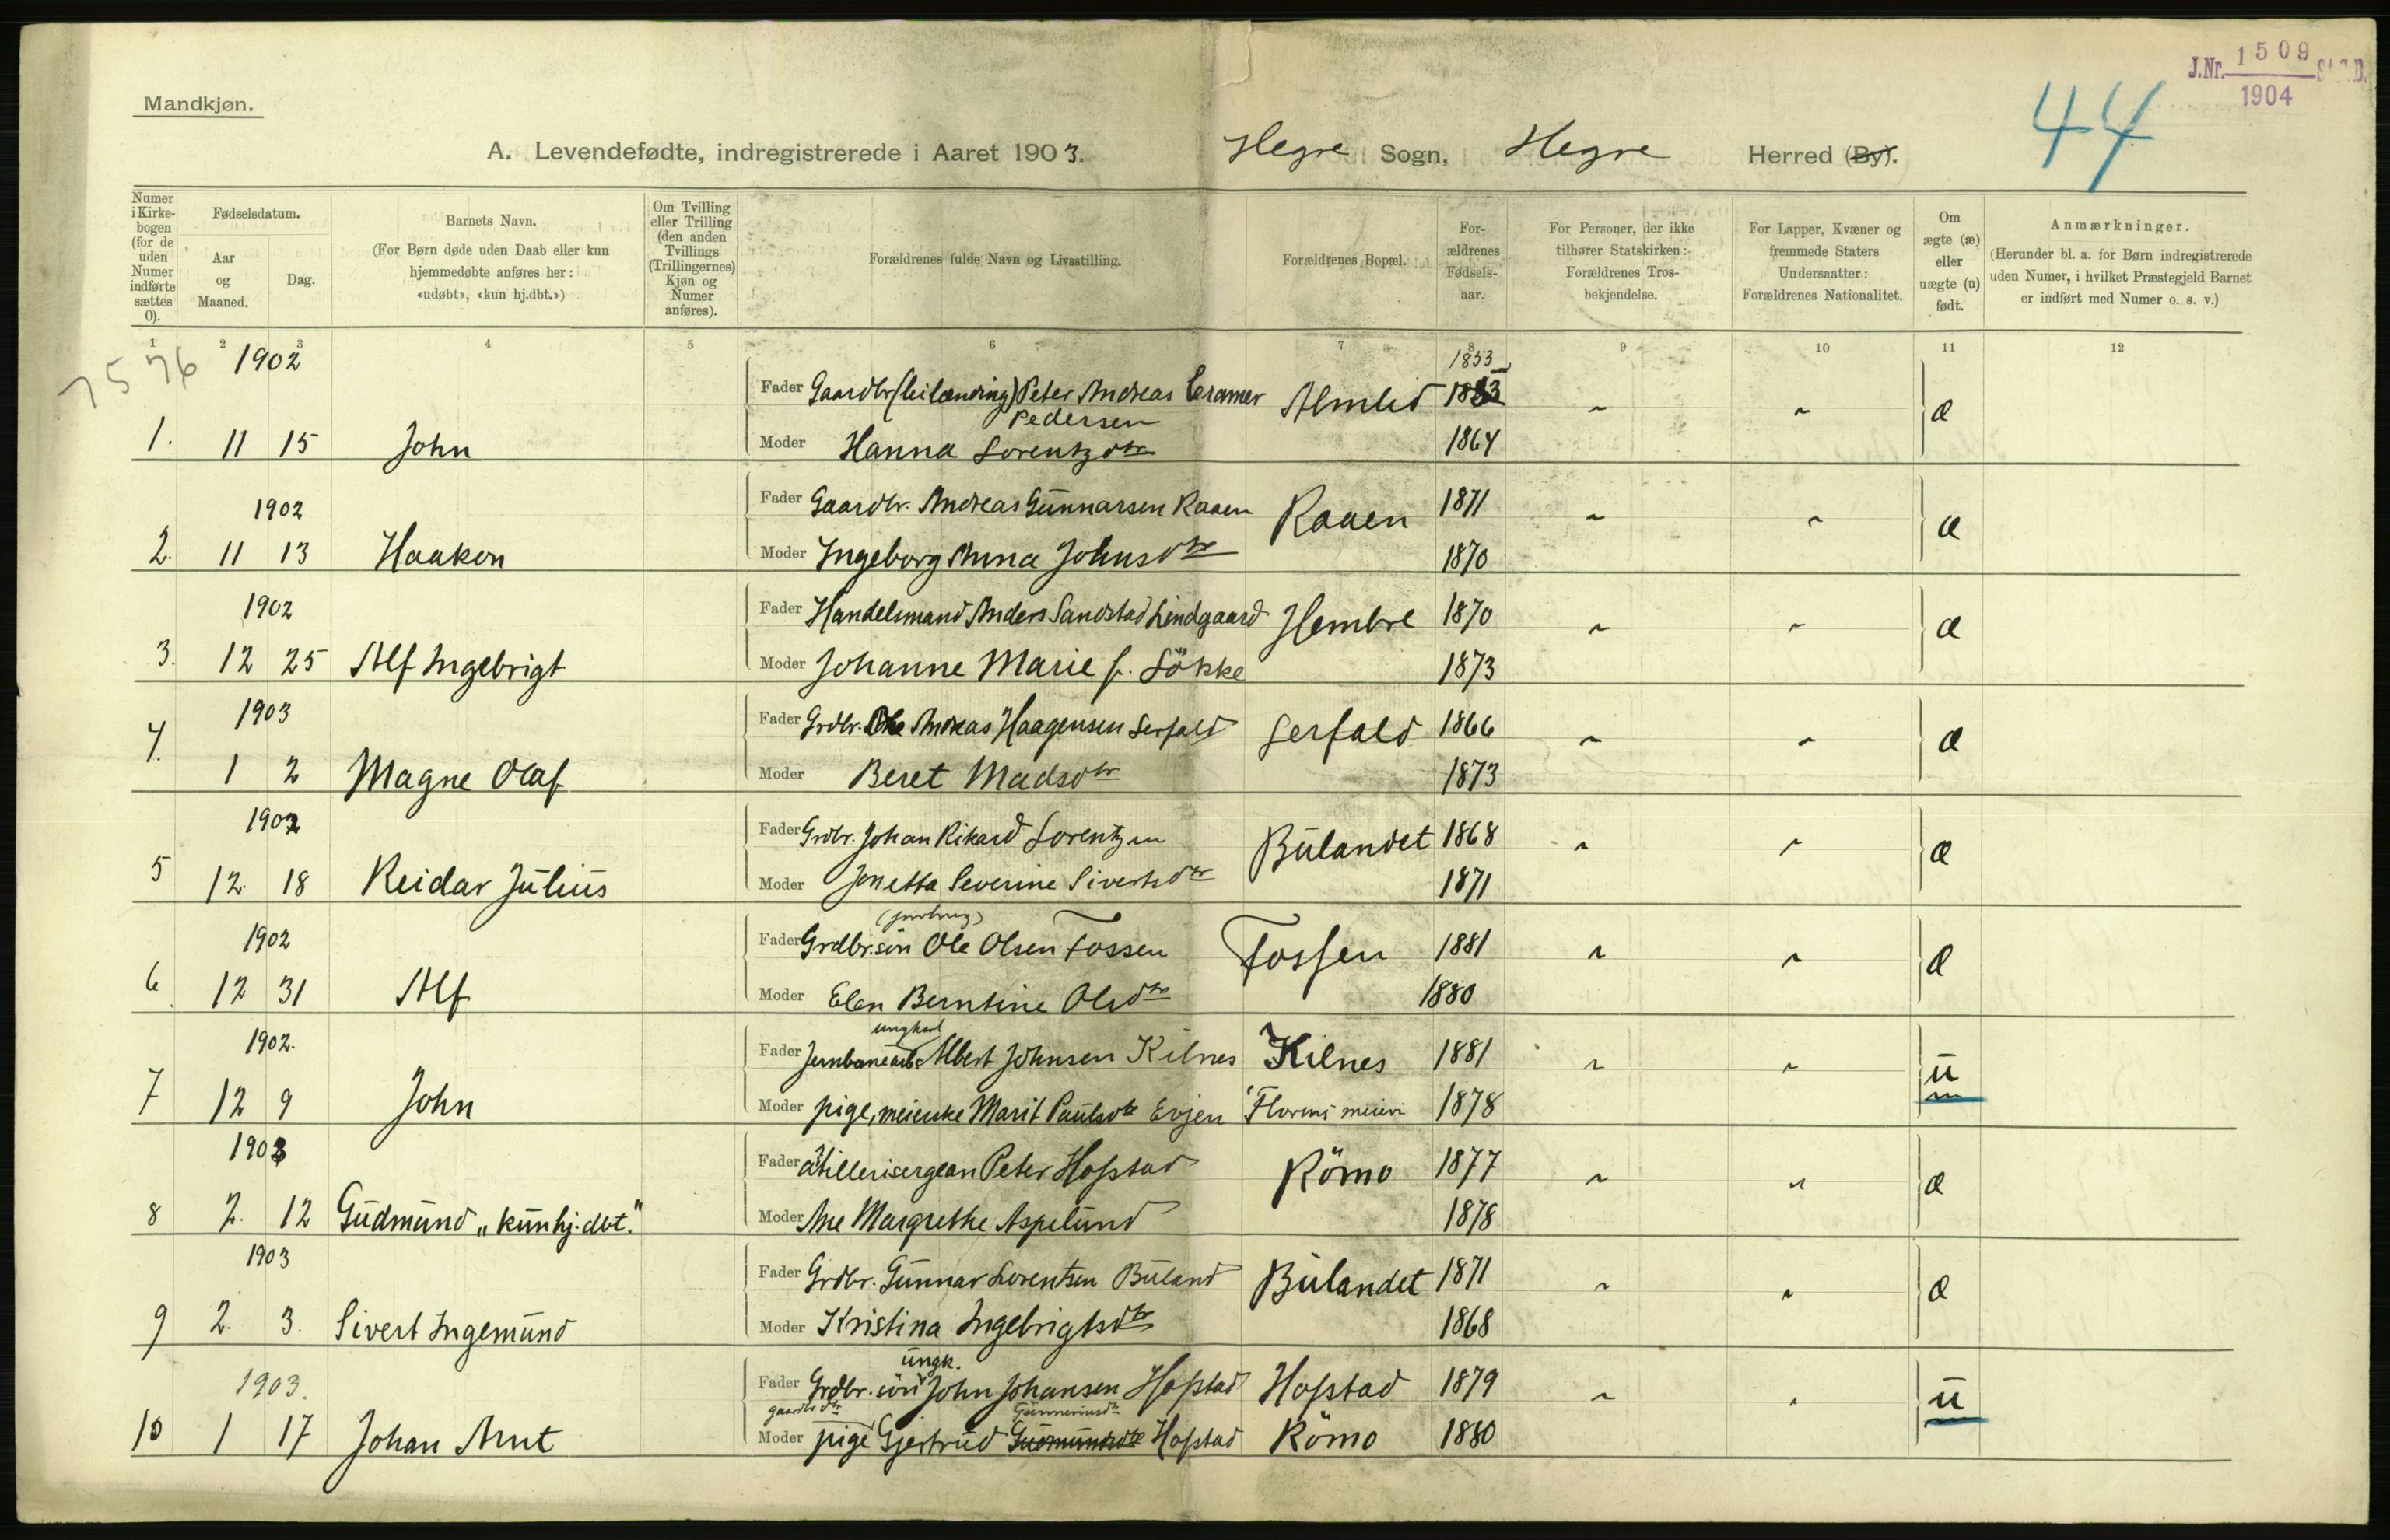 J.Nr. 1509 St.C.B.
1904
44
Mandkjøn.
A. Levendefødte, indregistrerede i Aaret 1903. Hegre Sogn, Hegre Herred (By).
Numer i Kirkebogen (for de uden Numer indførte sættes 0).
Fødselsdatum.
Aar og Maaned.
Dag.
Barnets Navn.
(For Børn døde uden Daab eller kun hjemmedøbte anføres her: «udøbt», «kun hj.dbt.»)
Om Tvilling eller Trilling (den anden Tvillings (Trillingernes) Kjøn og Numer anføres).
Forældrenes fulde Navn og Livsstilling.
Forældrenes Bopæl.
Forældrenes Fødselsaar.
For Personer, der ikke tilhører Statskirken: Forældrenes Trosbekjendelse.
For Lapper, Kvæner og fremmede Staters Undersaatter: Forældrenes Nationalitet.
Om ægte (æ) eller uægte (u) født.
Anmærkninger.
(Herunder bl. a. for Børn indregistrerede uden Numer, i hvilket Præstegjeld Barnet er indført med Numer o. s. v.)
1 2 3 4 5 6 7 8 9 10 11 12
7576
1902 1853
Fader Gaardbr (leilænding) Peter Andreas Cramer Almlid
Pedersen
1. 11 15 John Moder Hanna Lorentzdtr 1864 æ
1902 Fader Gaardbr. Andreas Gunnarsen Raaen Raaen 1871
2. 11 13 Haakon Moder Ingeborg Anna Johnsdtr 1870 æ
1902 Fader Handelsmand Anders Sandstad Lindgaard Hembre 1870
3. 12 25 Alf Ingebrigt Moder Johanne Marie f. Løkke 1873 æ
1903 Fader Grdbr. Ole Andreas Haagensen Lerfald Lerfald 1866
4. 1 2 Magne Olaf Moder Beret Madsdtr 1873 æ
1902 Fader Grdbr. Johan Rikard Lorentzen Bulandet 1868
5 12. 18 Reidar Julius Moder Jonetta Severine Sivertsdtr 1871 æ
(jordbrug)
1902 Fader Grdbr.søn Ole Olsen Fossen Fossen 1881
6. 12 31 Alf Moder Elen Berntine Olsdtr 1880 æ
ungkarl
1902. Fader Jernbanearb. Albert Johnsen Kilnes Kilnes 1881
7 12 9 John Moder pige, meierske Marit Paulsdtr Evjen Florens meieri 1878 u
1903 Fader Artillerisergean Peter Hofstad Römo 1877
8 2. 12 Gudmund „kun hj.dbt." Moder Ane Margrethe Aspelund 1878 æ
1903 Fader Grdbr. Gunnar Lorentsen Buland Bulandet 1871
9 2. 3. Sivert Ingemund Moder Kristina Ingebrigtsdtr 1868 æ
ungk.
1903. Fader Grdbr. søn John Johansen Hofstad Hofstad 1879
gaardbrdtr Gunneriusdtr
10 1 17 Johan Arnt Moder pige Gjertrud Gudmundsdtr Hofstad Römo 1880 u